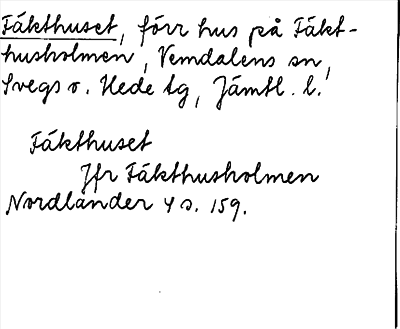 Fäkthuset, förr hus på Fäkt-
husholmen, Vemdalens sn,
Svegs o. Hede tg, Jämtl. l.
Fäkthuset
Jfr Fäkthusholmen
Nordlander 4 s. 159.